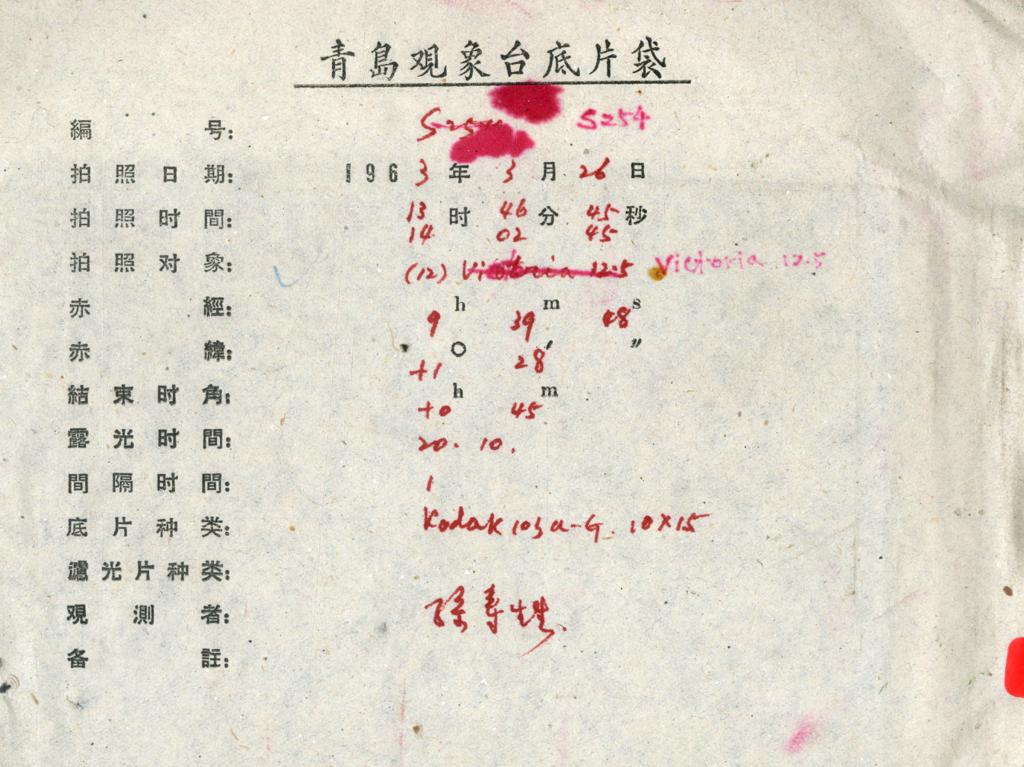 青島观象台底片袋
編 号: S254 S254
拍照日期: 1963年 3月 26日
拍照时間: 13时 46分 45秒
14 02 45
拍照对象: (12) Victoria 12.5 Victoria 12.5
赤 經: 9h 39m 48s
赤 緯: +1° 28′ ″
結束时角: +0h 45m
露光时間: 20. 10.
間隔时間: 1
底片种类: Kodak 103a-G. 10×15
濾光片种类:
观測者: 孫寿
备 註: